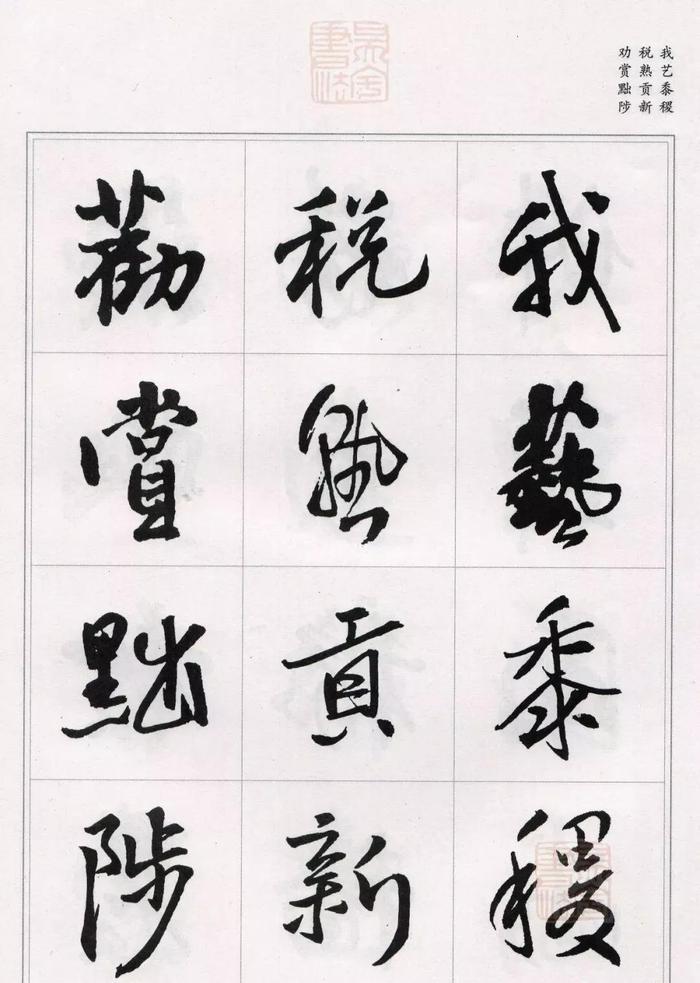 我艺黍稷
税熟贡新
劝赏黜陟
我藝黍稷
税熟貢新
勸賞黜陟